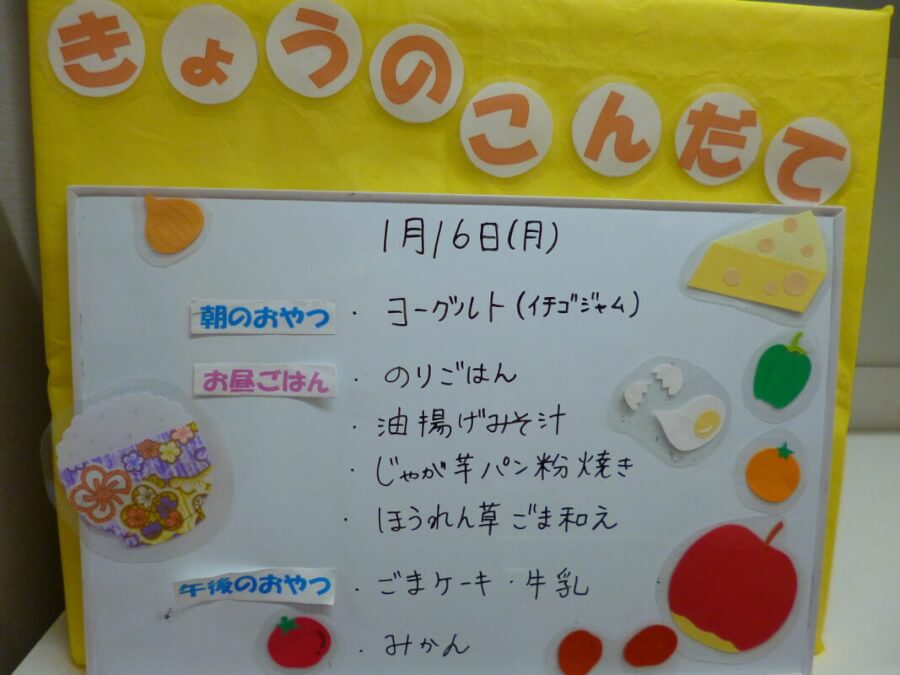 きょうのこんだて
1月16日(月)
朝のおやつ ・ ヨーグルト(イチゴジャム)
お昼ごはん ・ のりごはん
・ 油揚げみそ汁
・ じゃが芋パン粉焼き
・ ほうれん草ごま和え
午後のおやつ ・ ごまケーキ・牛乳
・ みかん